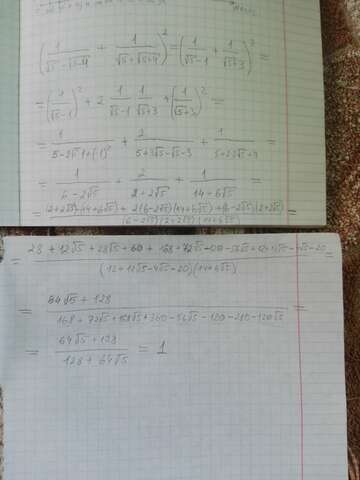 (1/(√5 - √5-4) + 1/(√5 + √5+4))² = (1/(√5-1) + 1/(√5+3))² =
= (1/(√5-1))² + 2 · 1/(√5-1) · 1/(√5+3) + (1/(√5+3))² =
= 1/(5-2√5·1+(-1)²) + 2/(5+3√5-√5-3) + 1/ =
= 1/(6-2√5) + 2/(2+2√5) + 1/(14+6√5) =
= (2+2√5)(14+6√5) + 2(6-2√5)(14+6√5) + (6-2√5)(2+2√5) / (6-2√5)(2+2√5)(14+6√5)
= 28 + 12√5 + 28√5 + 60 + 168 + 72√5 / (12+12√5-4√5-20)(14+6√5) =
= 64√5 + 128 / 168 + 72√5 + 168√5 + 360 - 56√5 - 120√5 =
= 64√5 + 128 / 128 + 64√5 = 1